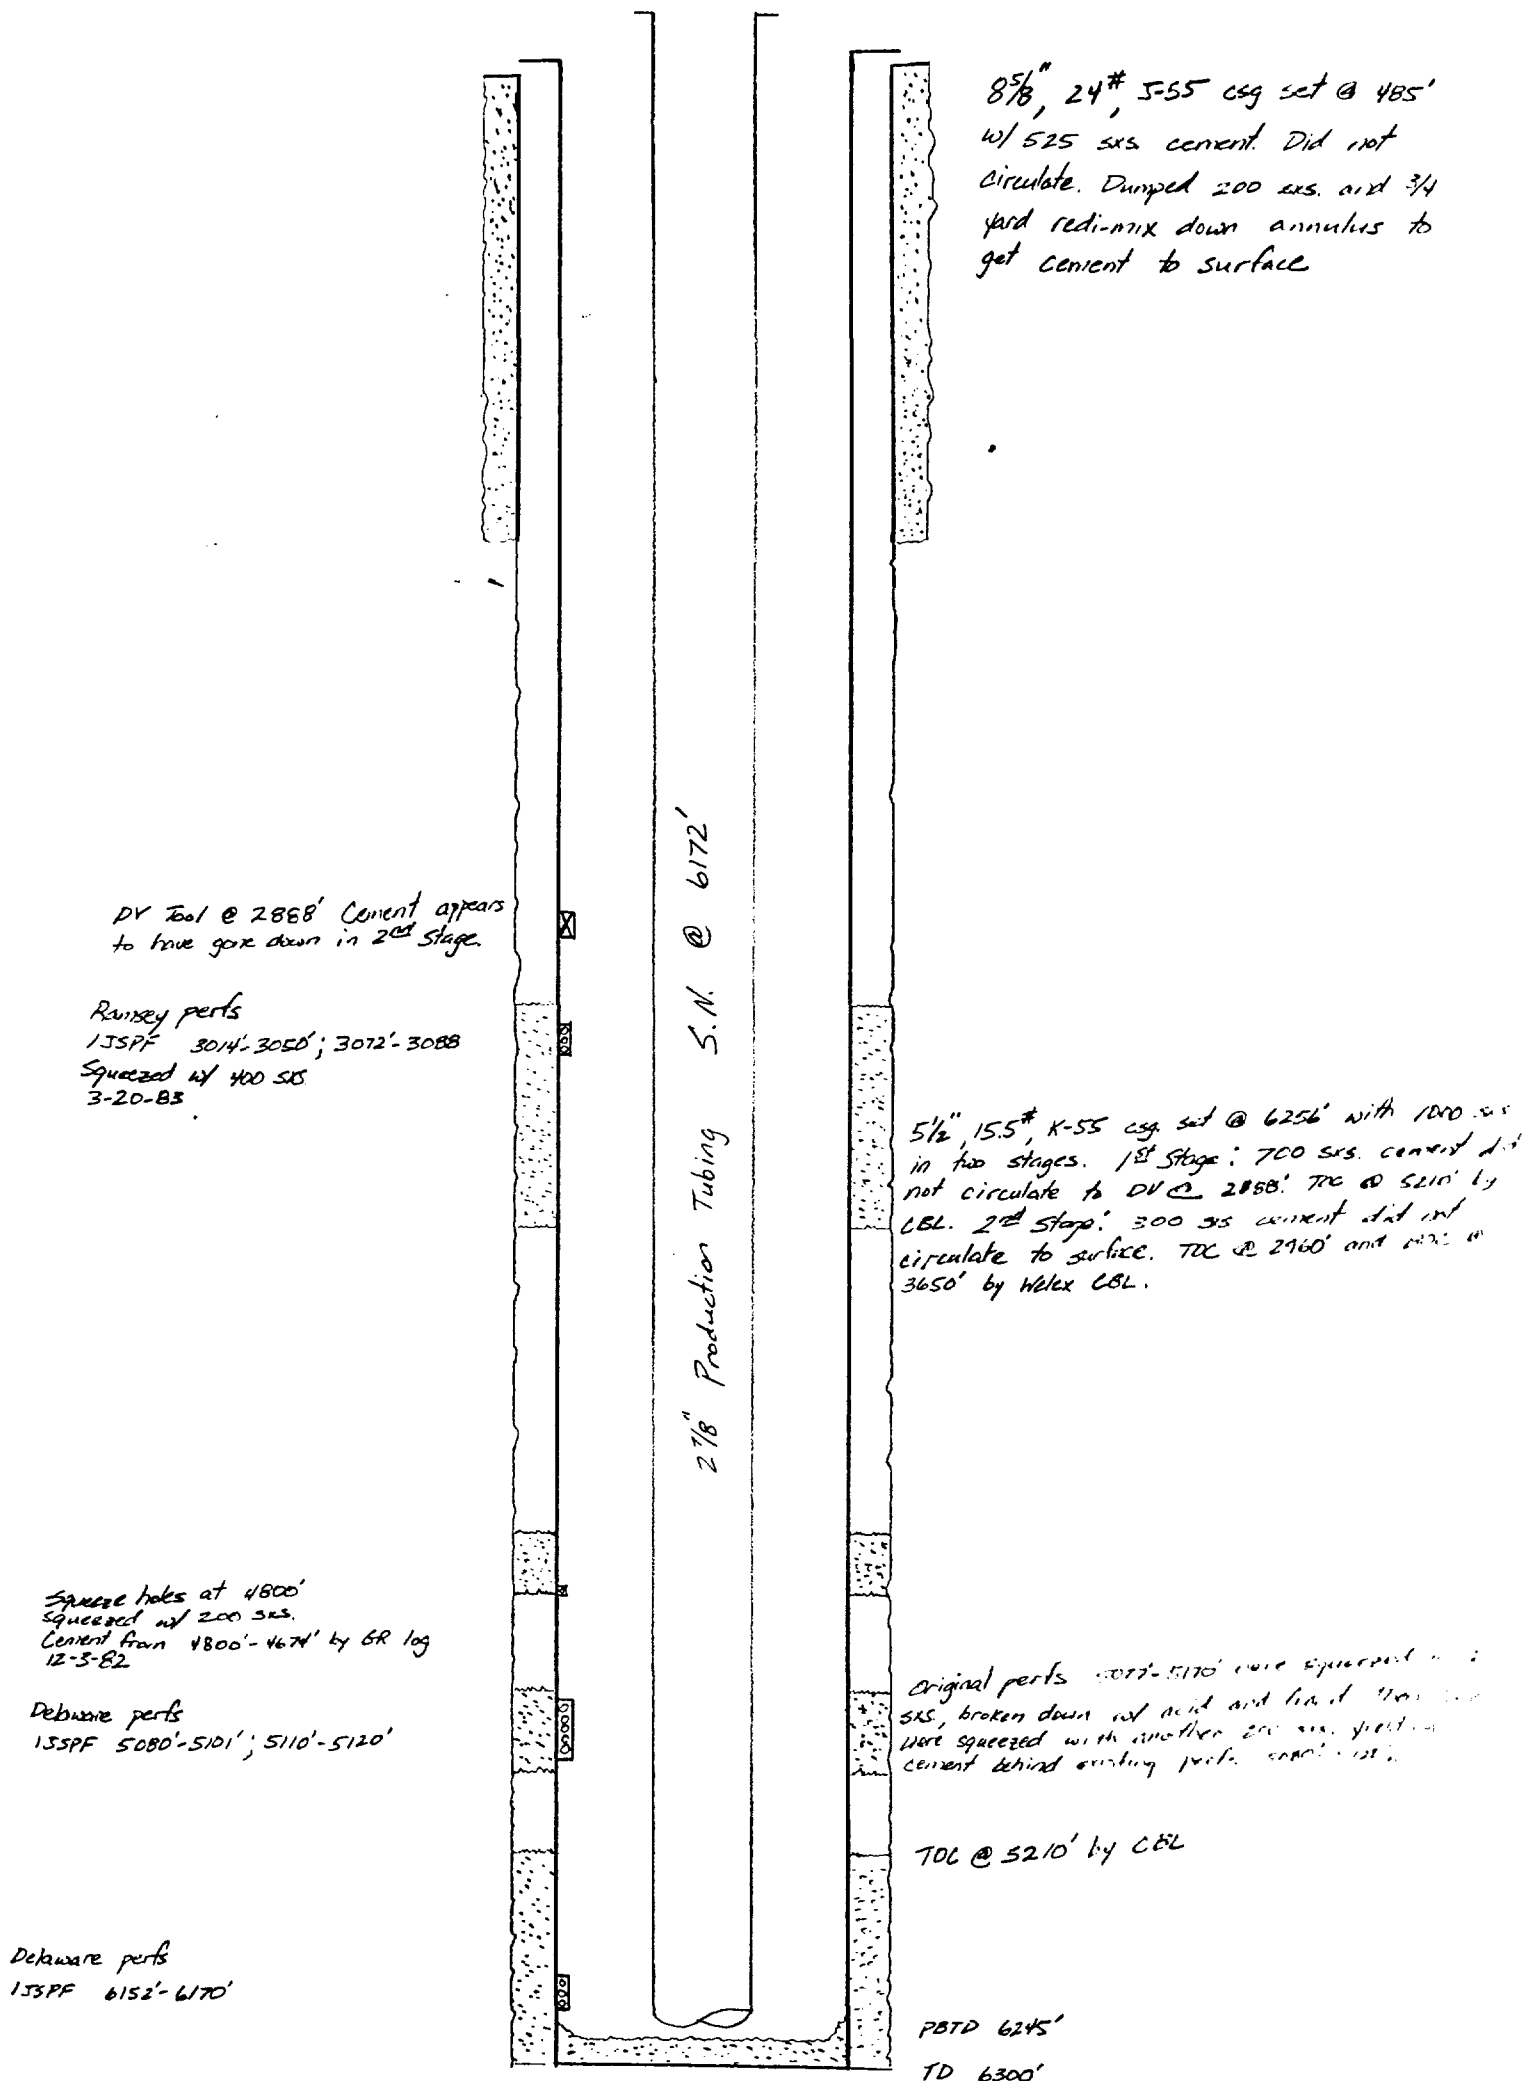 8 5/8", 24#, J-55 csg set @ 485'
w/ 525 sxs. cement. Did not
circulate. Dumped 200 sxs. and 3/4
yard redi-mix down annulus to
get cement to surface
2 7/8" Production Tubing S.N. @ 6172'
DV Tool @ 2888' Cement appears
to have gone down in 2nd Stage.
Ramsey perfs
1JSPF 3014'-3050'; 3072'-3088
Squeezed w/ 400 sxs
3-20-83
5 1/2", 15.5#, K-55 csg. set @ 6256' with 1000
in two stages. 1st Stage: 700 sxs. cement did
not circulate to DV @ 2888'. TOC @ 5210' by
CBL. 2nd Stage: 300 sxs cement did not
circulate to surface. TOC @ 2960' and
3650' by Welex CBL.
Squeeze holes at 4800'
squeezed w/ 200 sxs.
Cement from 4800'-4674' by GR log
12-3-82
Delaware perfs
1JSPF 5080'-5101'; 5110'-5120'
Original perfs 5077'-5170' were squeezed
sxs, broken down w/ acid and
were squeezed with another
cement behind existing perfs
TOC @ 5210' by CBL
Delaware perfs
1JSPF 6152'-6170'
PBTD 6245'
TD 6300'